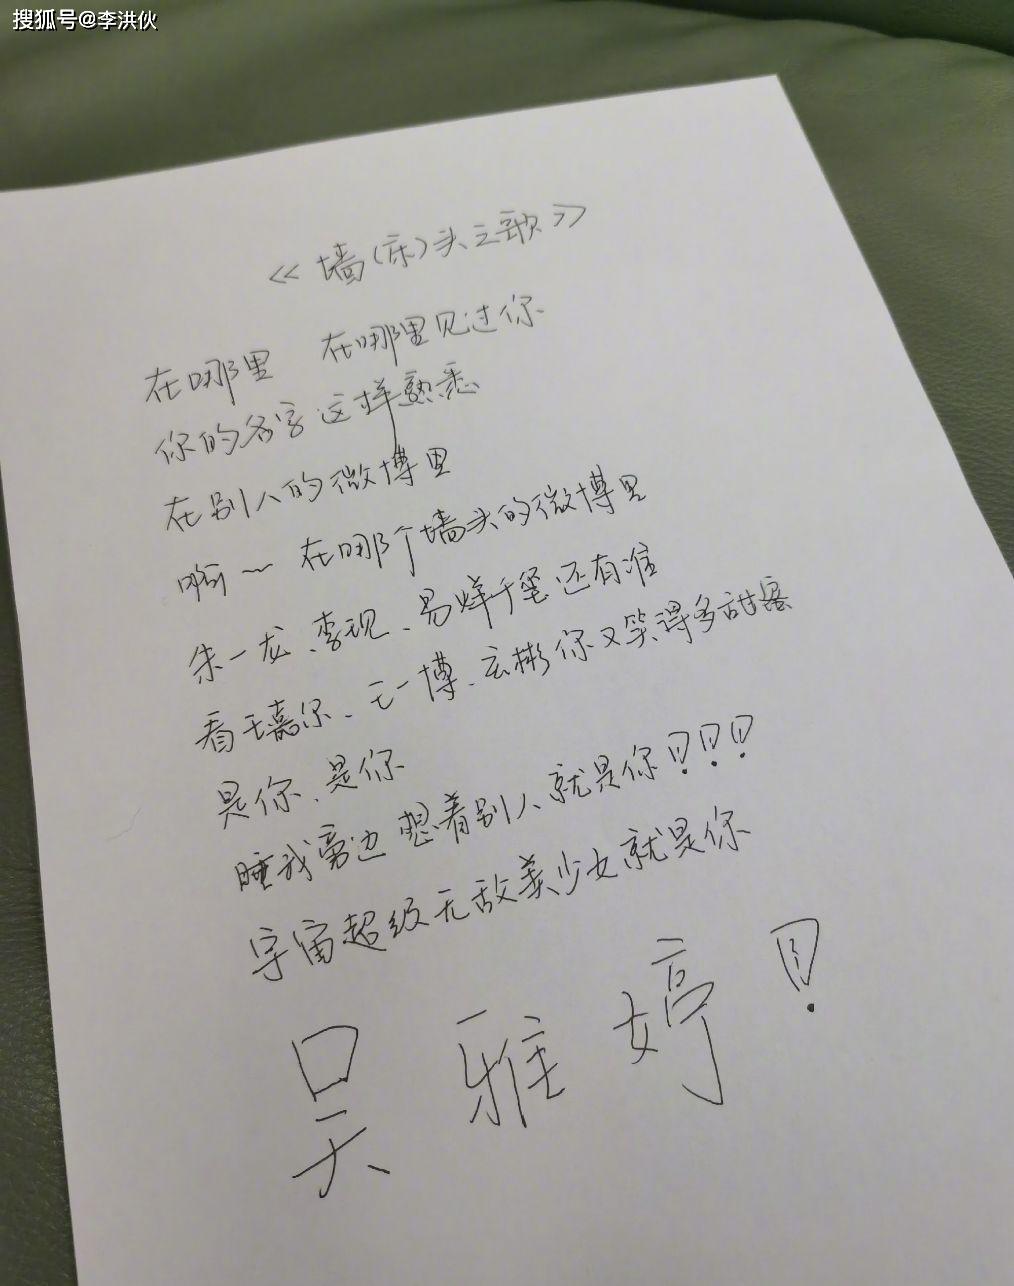 搜狐号@李洪伙
《墙(床)头之歌》
在哪里 在哪里见过你
你的名字这样熟悉
在别人的微博里
啊～在哪个墙头的微博里
朱一龙、李现、易烊千玺还有谁
看王嘉尔、王一博、云彬你又笑得多甜蜜
是你、是你
睡我旁边想着别人就是你!!!
宇宙超级无敌美少女就是你
吴雅婷!